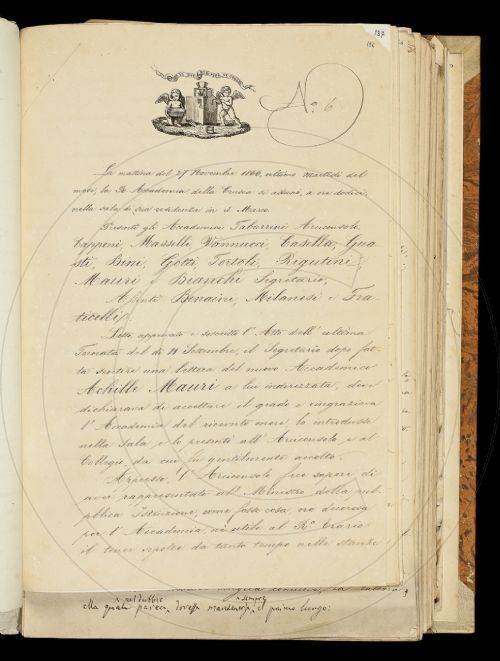 137
136
N.° 6
La mattina del 27 Novembre 1866, ultimo martedì del
mese, la R. Accademia della Crusca si adunò, a ore dodici,
nella sala di sua residenza in S. Marco.
Presenti gli Accademici Tabarrini Arciconsolo,
Capponi, Maselli, Vannucci, Casella, Gua-
sti, Bini, Gotti, Tortoli, Rigutini,
Mauri e Bianchi Segretario,
Assenti Bonaini, Milanesi e Fra-
ticelli.
Letto, approvato e soscritto l'Atto dell'ultima
Tornata del dì 11 Settembre, il Segretario dopo fat-
ta sentire una lettera del nuovo Accademico
Achille Mauri a lui indirizzata, dove
dichiarava di accettare il grado e ringraziava
l'Accademia del ricevuto onore, lo introdusse
nella Sala, e lo presentò all'Arciconsolo e al
Collegio, da cui fu gentilmente accolto.
Appresso, l'Arciconsolo fece sapere di
aver rappresentato al Ministro della pub-
blica Istruzione, come fosse cosa, no decorosa
per l'Accademia, nè utile al R.° Erario
il tener sepolte da tanto tempo nelle stanze
alla quale pareva dovesse mantenersi il primo luogo: